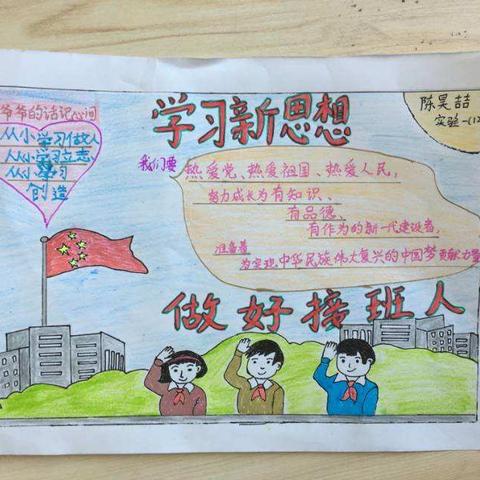 学习新思想
陈昊喆
实验一(12
爷爷的话记心间
从小学习做人
从小学习立志
从小学习
创造
我们要
热爱党、热爱祖国、热爱人民,
努力成长为有知识、
有品德、
有作为的新一代建设者,
准备着
为实现中华民族伟大复兴的中国梦贡献力量
做好接班人